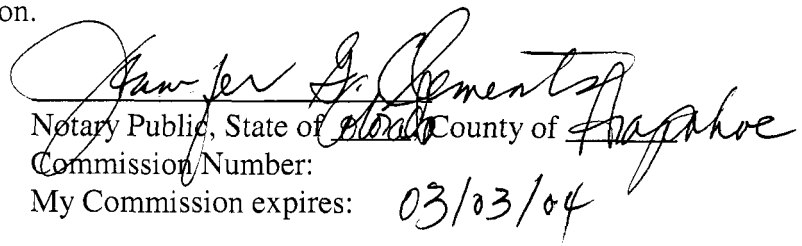 on.
G. Clements
Notary Public, State of Colorado County of Arapahoe
Commission Number:
My Commission expires: 03/03/04